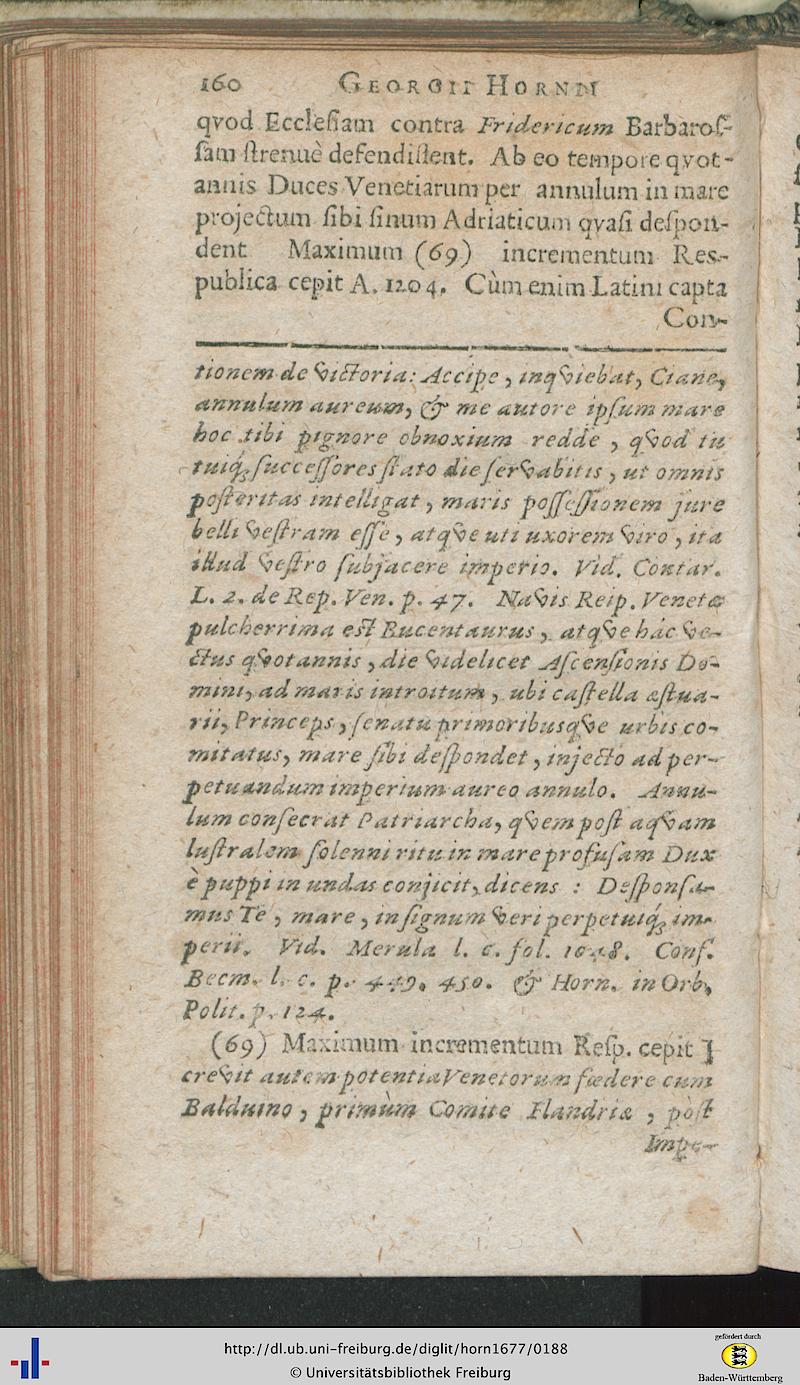 160 GEORGII HORNII
qvod Ecclesiam contra Fridericum Barbaroſ-
ſam ſtrenuè defendiſſent. Ab eo tempore qvot-
annis Duces Venetiarum per annulum in mare
projectum ſibi ſinum Adriaticum qvaſi deſpon-
dent Maximum (69) incrementum Res-
publica cepit A. 1204. Cùm enim Latini capta
Con-
tionem de victoria: Accipe, inqviebat, Ciane,
annulum aureum, & me autore ipſum mare
hoc tibi pignore obnoxium redde, qvod tu
tuiq; ſucceſſores ſtato die ſervabitis, ut omnis
poſteritas intelligat, maris poſſeſſionem jure
belli veſtram eſſe, atqve uti uxorem viro, ita
illud veſtro ſubjacere imperio. Vid. Contar.
L. 2. de Rep. Ven. p. 47. Navis Reip. Venetæ
pulcherrima eſt Bucentaurus, atqve hác ve-
ctus qvotannis, die videlicet Aſcenſionis Do-
mini, ad maris introitum, ubi caſtella æſtua-
rii, Princeps, ſenatu primoribusqve urbis co-
mitatus, mare ſibi deſpondet, injecto ad per-
petuandum imperium aureo annulo. Annu-
lum conſecrat Patriarcha, qvem poſt aqvam
luſtralem ſolenni ritu in mare profuſam Dux
è puppi in undas conjicit, dicens: Deſponſa-
mus Te, mare, in ſignum veri perpetuiq; im-
perii. Vid. Merula l. c. fol. Conf.
Becm. l. c. p. 449. 450. & Horn. in Orb.
Polit. p. 124.
(69) Maximum incrementum Reſp. cepit ]
crevit autem potentia Venetorum fœdere cum
Balduino, primùm Comite Flandriæ, pòſt
Impe-
http://dl.ub.uni-freiburg.de/diglit/horn1677/0188
© Universitätsbibliothek Freiburg
gefördert durch
Baden-Württemberg